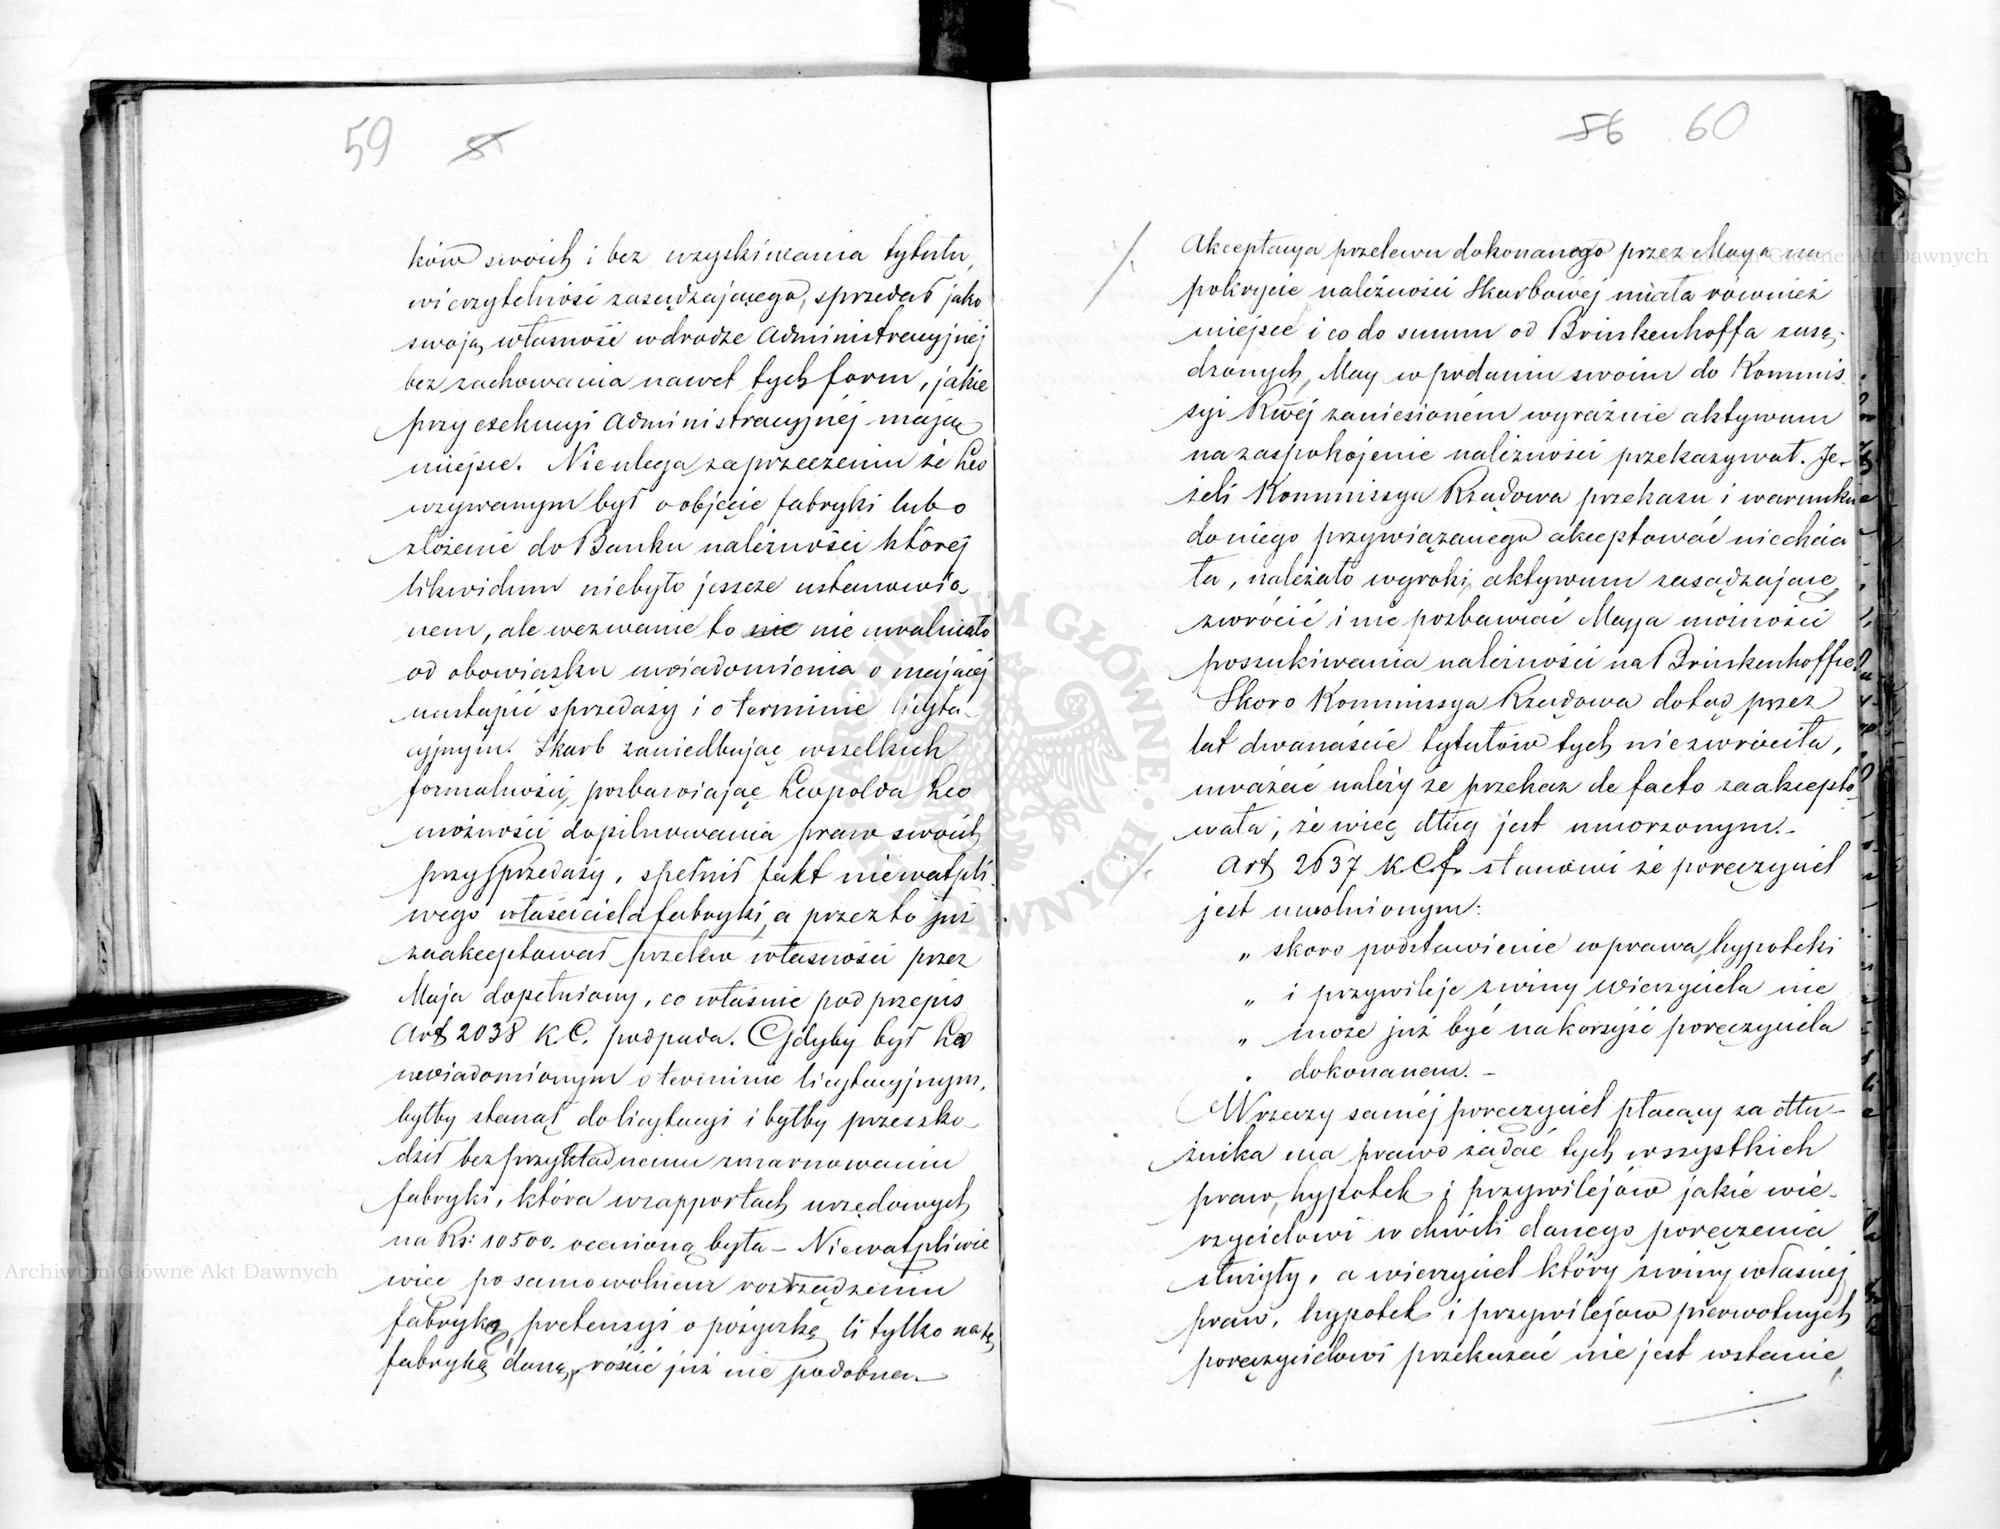 59 55
ków swoich i bez uzyskiwania tytułu,
wierzytelność zasądzającego, sprzedał jako
swoją własność w drodze Administracyjnéj
bez zachowania nawet tych form, jakie
przy exekucyi Administracyjnéj mają
miejsce. Nieulega zaprzeczeniu że Leo
wzywanym był o objęcie fabryki lub o
złożenie do Banku należności któréj
likwidum niebyło jeszcze ustanowio-
nem, ale wezwanie to nie nie uwalniało
od obowiązku uwiadomienia o mającéj
nastąpić sprzedaży i o terminie licyta-
cyjnym. Skarb zaniedbując wszelkich
formalności, pozbawiając Leopolda Leo
możności dopilnowania praw swoich
przy sprzedaży, spełnił fakt niewątpli-
wego właściciela fabryki, a przez to już
zaakceptował przelew własności przez
Maja dopełniony, co właśnie pod przepis
Art 2038 K.C. podpada. Gdyby był Leo
uwiadomionym o terminie licytacyjnym,
byłby stanął do licytacyi i byłby przeszko-
dził bezprzykładnemu zmarnowaniu
fabryki, która w rapportach urzędowych
na Rs: 10500. ocenioną była – Niewątpliwie
więc po samowolnem rozrządzeniu
fabryką, pretensyi o pożyczkę li tylko na tę
fabrykę daną, rościć już nie podobna.–
56 60
Akceptacya przelewu dokonanego przez Maya na
pokrycie należności Skarbowéj miała również
miejsce i co do summ od Brinkenhoffa zasą-
dzonych, May w podaniu swoim do Kommis-
syi Rwéj zaniesioném wyraźnie aktywum
na zaspokojenie należności przekazywał. Je-
żeli Kommissya Rządowa przekazu i warunku
do niego przywiązanego akceptować niechcia
ła, należało wyroki aktywum zasądzające
zwrócić i nie pozbawiać Maya możności
poszukiwania należności na Brinkenhoffie.
Skoro Kommissya Rządowa dotąd przez
lat dwanaście tytułów tych niezwróciła,
uważać należy że przekaz de facto zaakcepto-
wała, że więc dług jest umorzonym.–
Art 2037 K.C.f. stanowi że poręczyciel
jest uwolnionym:
„ skoro podstawienie w prawa, hypoteki
„ i przywileje z winy wierzyciela nie
„ może już być na korzyść poręczyciela
„ dokonanem. –
W rzeczy saméj poręczyciel płacący za dłu-
żnika ma prawo żądać tych wszystkich
praw, hypotek i przywilejów jakie wie-
rzycielowi w chwili danego poręczenia
służyły, a wierzyciel który z winy własnéj
praw, hypotek i przywilejów pierwotnych
poręczycielowi przekazać nie jest wstanie,
Archiwum Główne Akt Dawnych
Archiwum Główne Akt Dawnych
ARCHIWUM GŁÓWNE AKT DAWNYCH